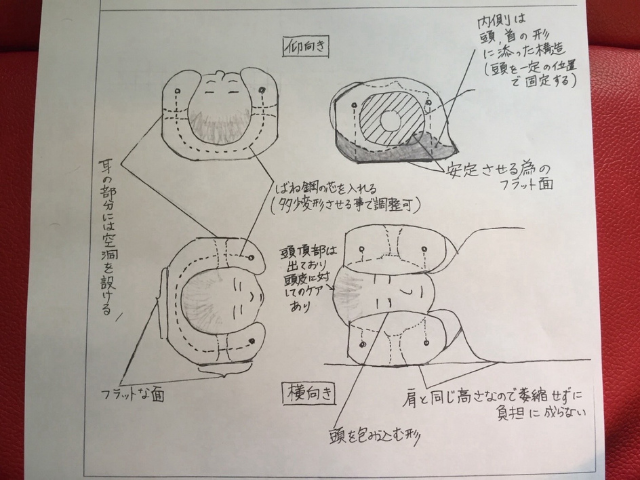 仰向き
内側は
頭、首の形
に添った構造
(頭を一定の位置
で固定する)
安定させる為の
フラット面
耳の部分には空洞を設ける
ばね鋼の芯を入れる
(多少変形させる事で調整可)
頭頂部は
出ており
頭皮に対
してのケア
あり
フラットな面
横向き
肩と同じ高さなので萎縮せずに
負担に成らない
頭を包み込む形